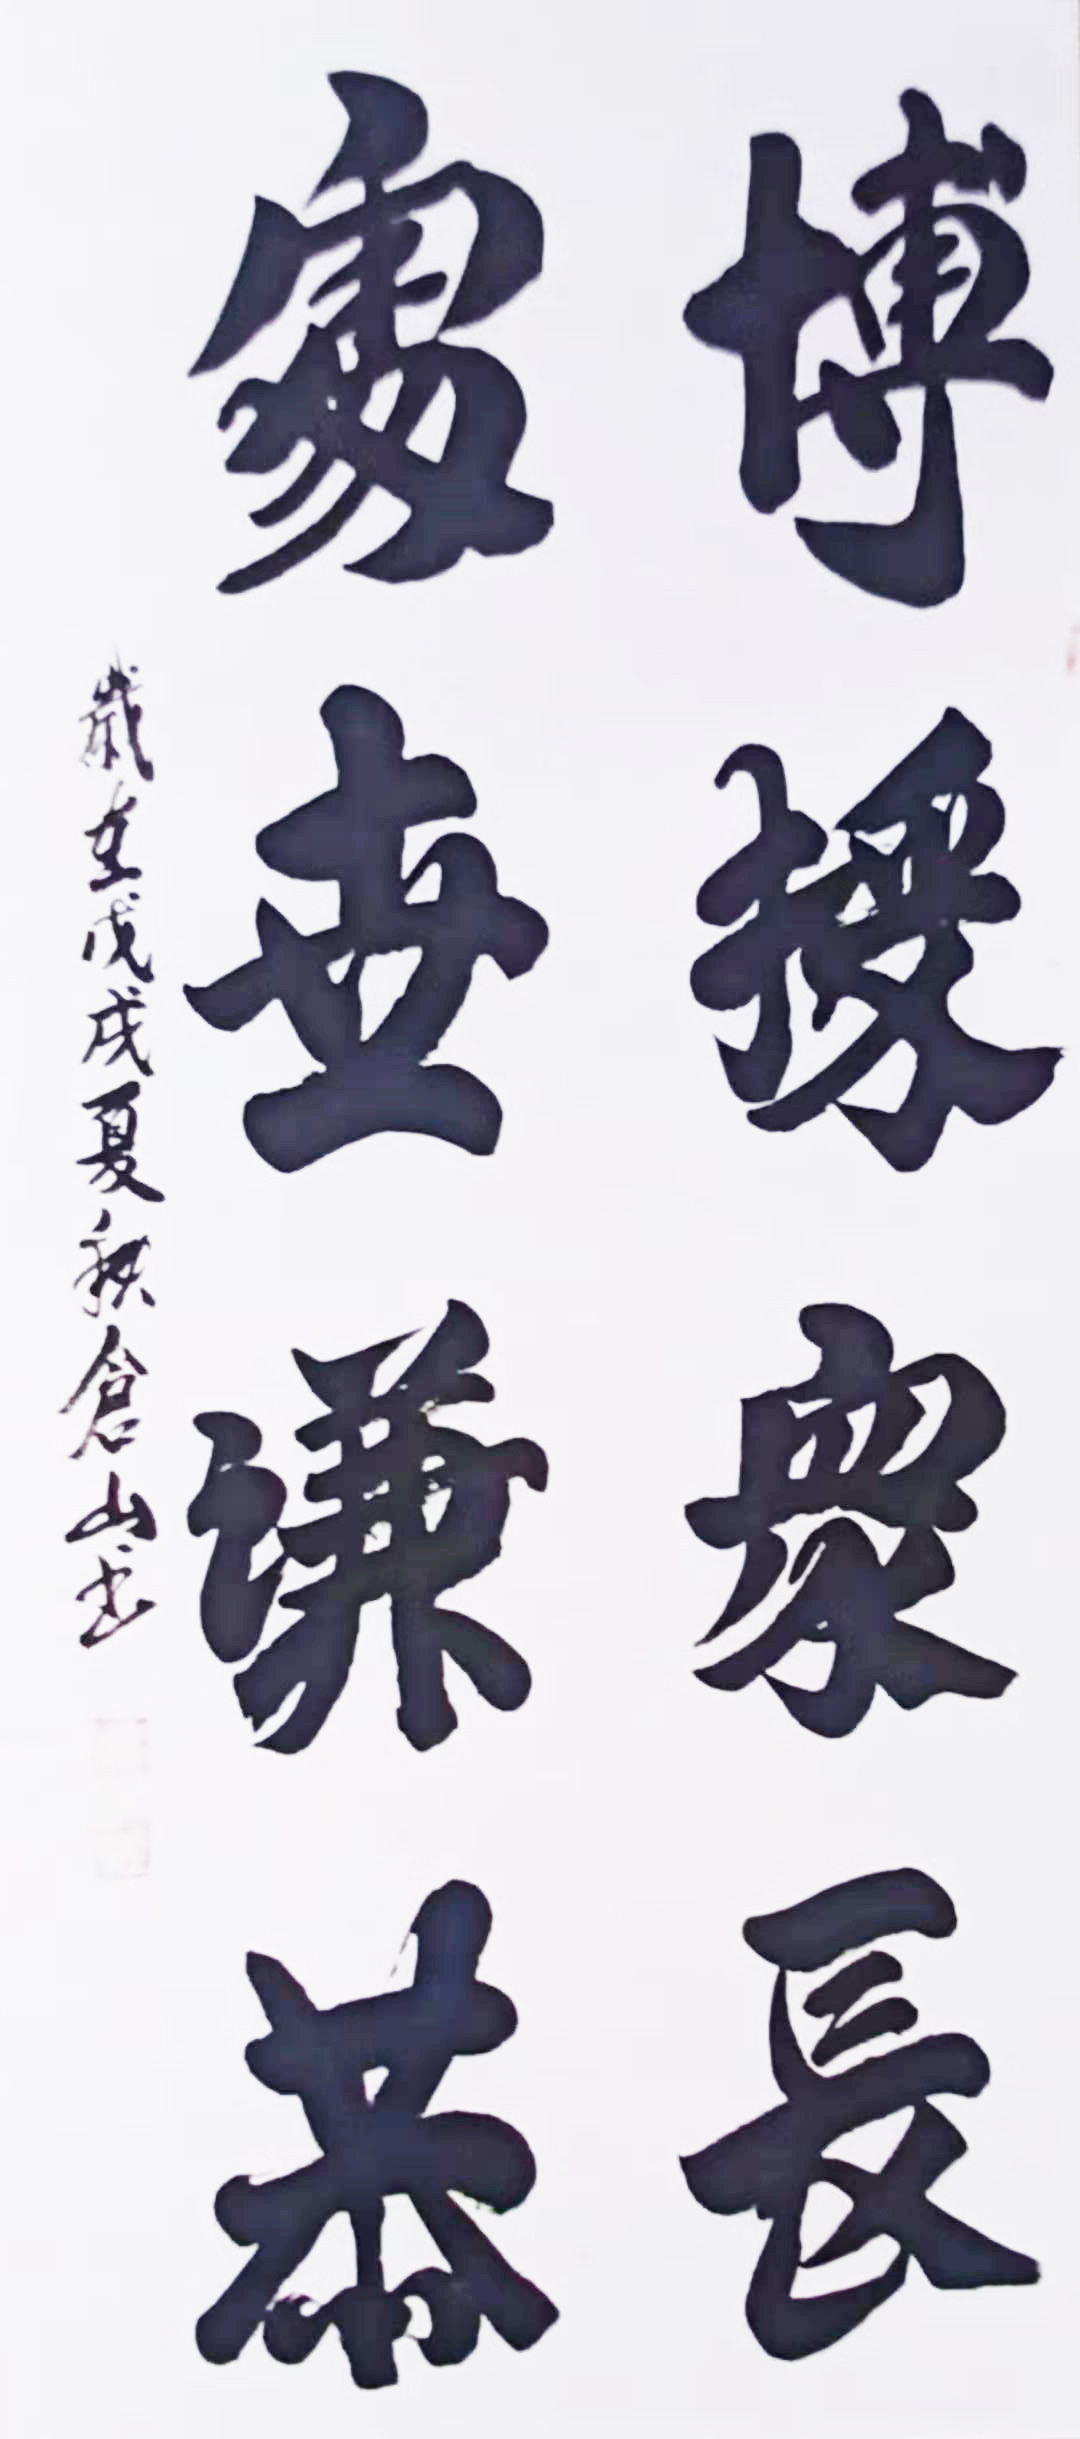 博採衆長
處世謙恭
歲在戊戌夏秋倉山書